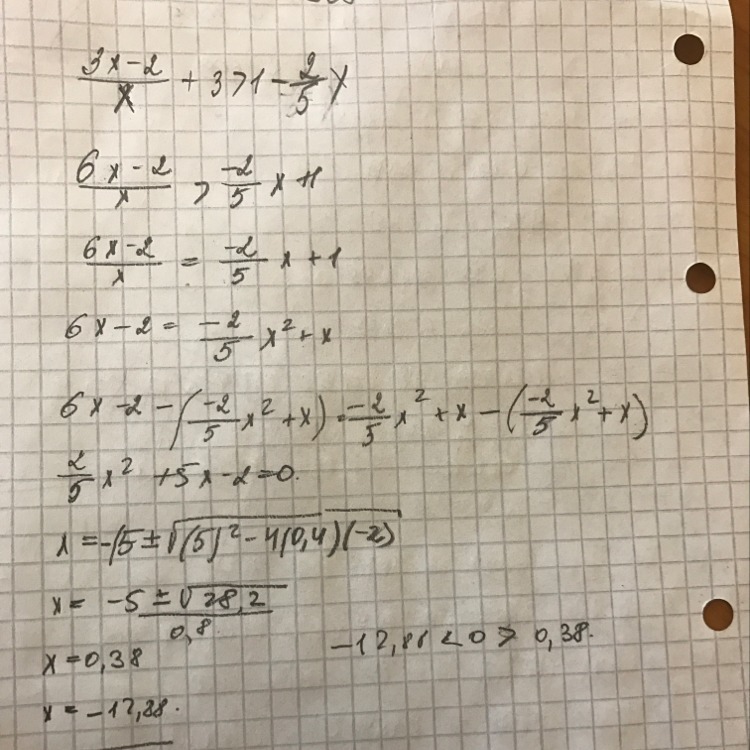 (3x-2)/x + 3 > 1 - 2/5 x
(6x-2)/x > -2/5 x + 1
(6x-2)/x = -2/5 x + 1
6x - 2 = -2/5 x² + x
6x - 2 - (-2/5 x² + x) = -2/5 x² + x - (-2/5 x² + x)
2/5 x² + 5x - 2 = 0.
x = -5 ± √((5)² - 4(0,4)(-2))
x = (-5 ± √28,2)/0,8
x = 0,38
-12,88 < 0 > 0,38.
x = -12,88.